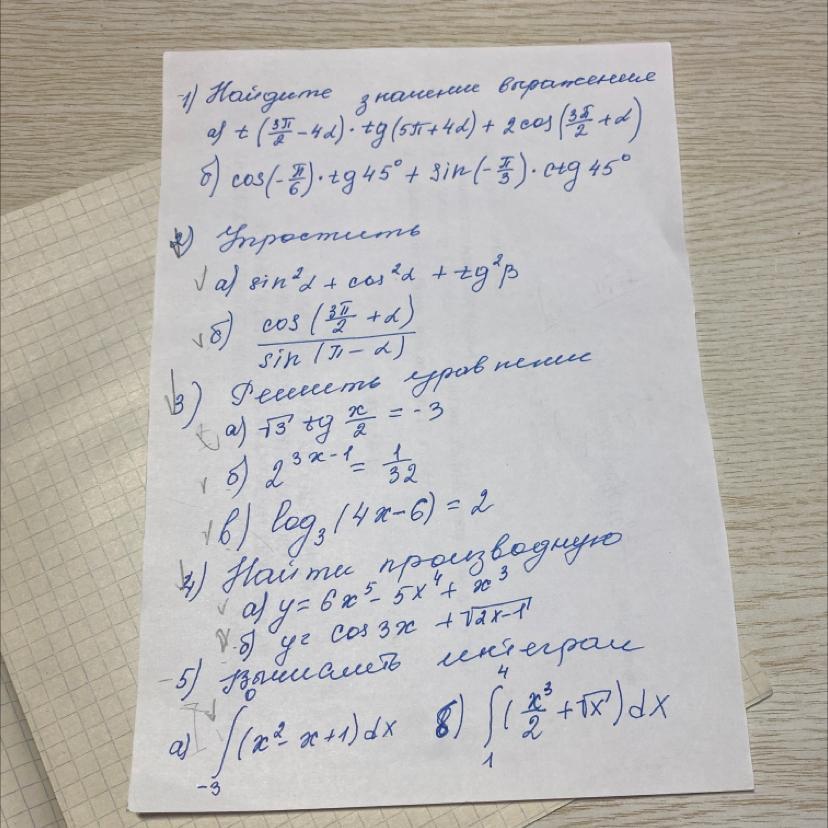 1) Найдите значение выражение
а) t(3π/2 - 4α)·tg(5π+4α) + 2cos(3π/2 + α)
б) cos(-π/6)·tg45° + sin(-π/3)·ctg45°
2) Упростить
а) sin²α + cos²α + tg²β
б) cos(3π/2 + α) / sin(π - α)
3) Решить уравнении
а) √3 tg x/2 = -3
б) 2^(3x-1) = 1/32
в) log₃(4x-6) = 2
4) Найти производную
а) y = 6x⁵ - 5x⁴ + x³
б) y = cos3x + √(2x-1)
5) Вычислить интеграл
а) ∫₋₃⁰ (x² - x + 1)dx б) ∫₁⁴ (x³/2 + √x)dx